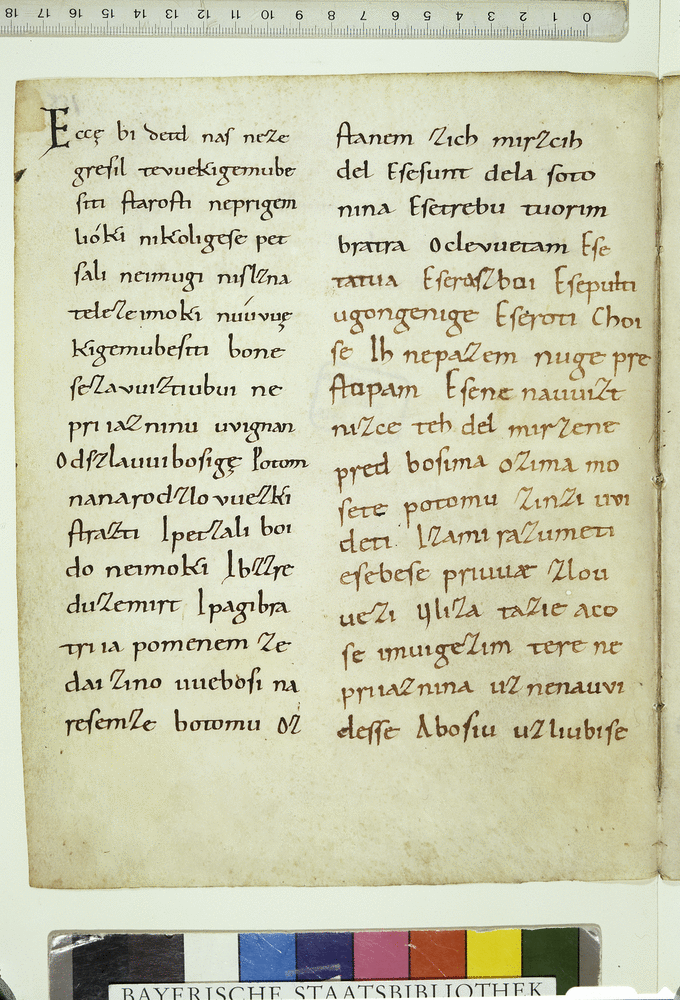 Eccę bi detd naſ neze
greſil tevuekigemube
ſiti ſtaroſti neprigem
lióki nikoligeſe pet
ſali neimugi niſlzna
teleze imoki nuúvuę
kigemubeſiti bone
ſezavuiztiubui ne
pri iazninu uvignan
Odſzlauuibosigę Potom
nanarodzlo vuezki
ſtrazti Ipetzali boi
do neimoki Ibzzre
duzemirt Ipagibra
tri ia pomenem ze
dai zino vuebosi na
reſemze botomu oz
ſtanem zich mirzcih
del Eſeſunt dela ſoto
nina Eſetrebu tuorim
bratra Oclevuetam Eſe
tatua Eſeraſzboi Eſepulti
ugongenige Eſeroti Choi
ſe Ih nepazem nuge pre
ſtopam Eſene nauuizt
nizce teh del mirzene
pred bosima ozima mo
ſete potomu zinzi uvi
deti Izami razumeti
eſebeſe priuuæ zlou
uezi Uliza tazie aco
ſe imuigezim tere ne
priiaznina uz nenauvi
deſſe Aboſiu uzliubiſe
18 17 16 15 14 13 12 11 10 9 8 7 6 5 4 3 2 1 0
BAYERISCHE STAATSBIBLIOTHEK